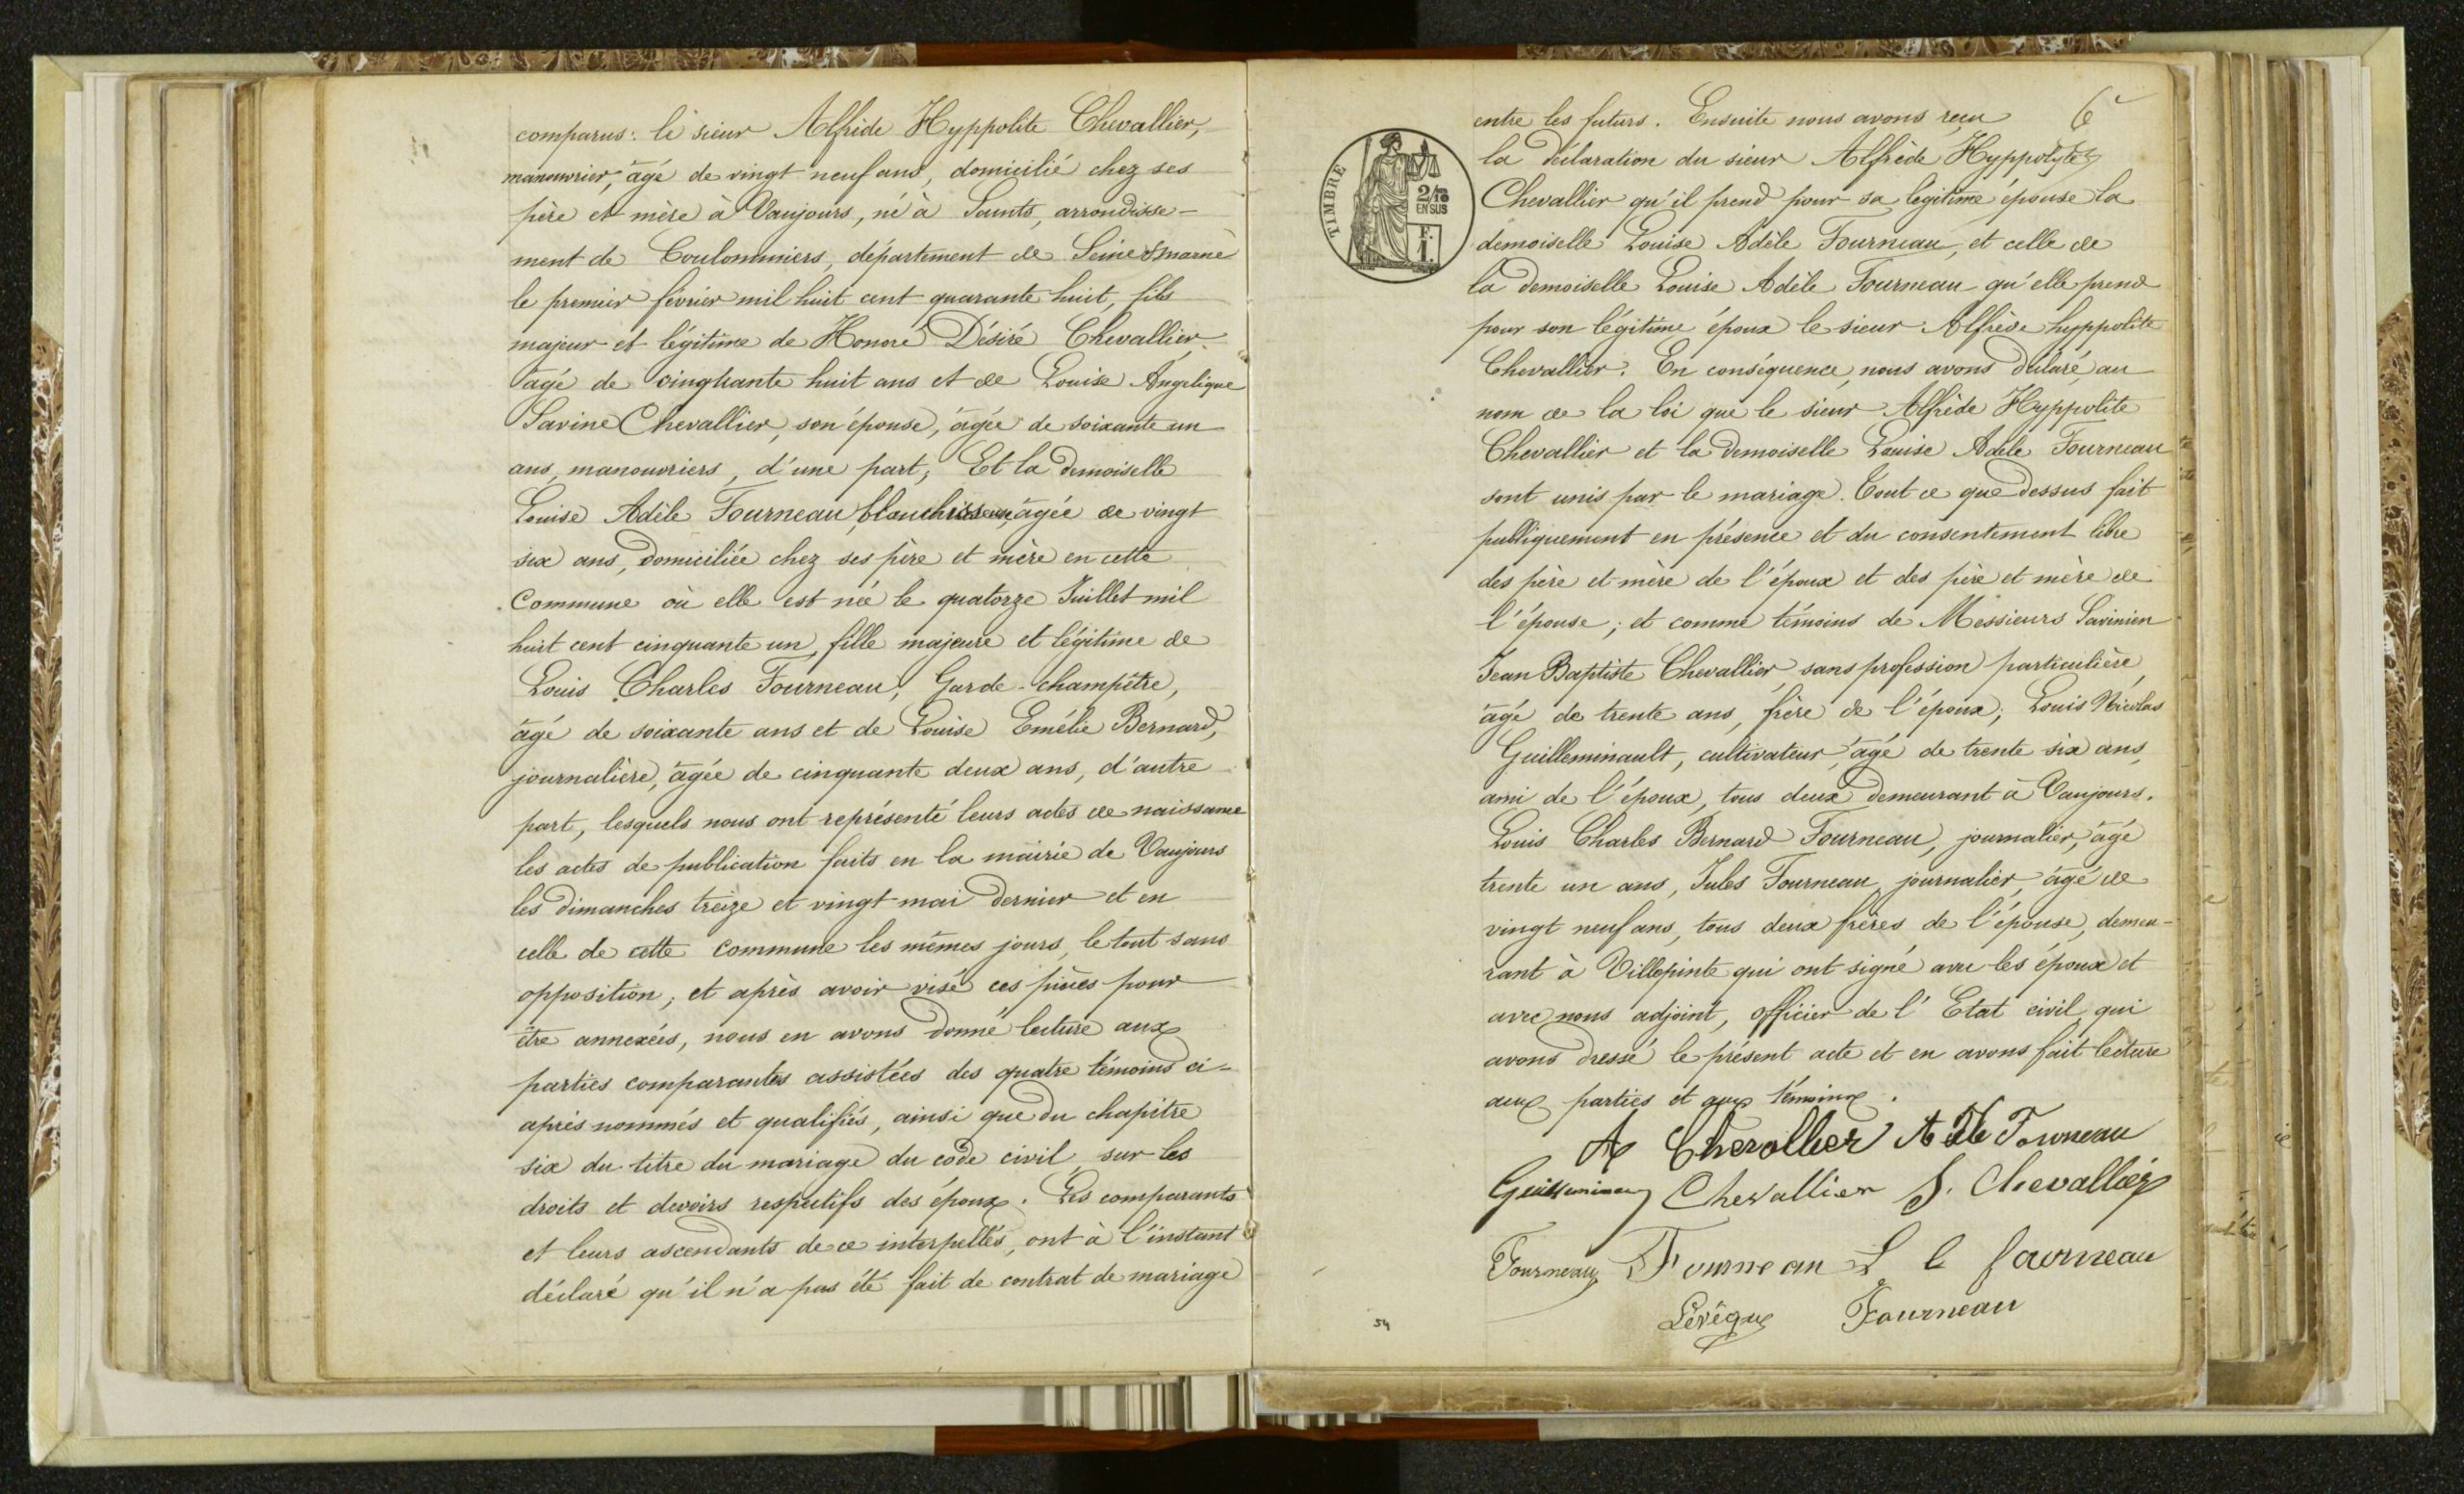 comparus: le sieur Alfrède Hyppolite Chevallier,
manouvrier, âgé de vingt neuf ans, domicilié chez ses
père et mère à Vaujours, né à Saints, arrondisse-
ment de Coulommiers, département de Seine & marne
le premier février mil huit cent quarante huit, fils
majeur et légitime de Honoré Désiré Chevallier
âgé de cinquante huit ans et de Louise Angelique
Savine Chevallier, son épouse, âgée de soixante un
ans, manouvriers, d'une part; Et la demoiselle
Louise Adèle Fourneau, blanchisseuse, âgée de vingt
six ans, domiciliée chez ses père et mère en cette
Commune où elle est née le quatorze Juillet mil
huit cent cinquante un, fille majeure et légitime de
Louis Charles Fourneau, Garde-champêtre,
âgé de soixante ans et de Louise Emélie Bernard,
journalière, âgée de cinquante deux ans, d'autre
part, lesquels nous ont représenté leurs actes de naissance
les actes de publication faits en la mairie de Vaujours
les dimanches treize et vingt mai dernier et en
celle de cette Commune les mêmes jours, le tout sans
opposition; et après avoir visé ces pièces pour
être annexées, nous en avons donné lecture aux
parties comparantes assistées des quatre témoins ci-
après nommés et qualifiés, ainsi que du chapitre
six du titre du mariage du code civil, sur les
droits et devoirs respectifs des époux. Les comparants
et leurs ascendants de ce interpellés, ont à l'instant
déclaré qu'il n'a pas été fait de contrat de mariage
6
entre les futurs. Ensuite nous avons reçu
TIMBRE
2/10
EN SUS
F.
1.
la déclaration du sieur Alfrède Hyppolyte
Chevallier qu'il prend pour sa légitime épouse la
demoiselle Louise Adèle Fourneau, et celle de
la demoiselle Louise Adèle Fourneau qu'elle prend
pour son légitime époux le sieur Alfrède hyppolite
Chevallier. En conséquence, nous avons déclaré, au
nom de la loi que le sieur Alfrède Hyppolite
Chevallier et la demoiselle Louise Adèle Fourneau
sont unis par le mariage. Tout ce que dessus fait
publiquement en présence et du consentement libre
des père et mère de l'époux et des père et mère de
l'épouse; et comme témoins de Messieurs Savinien
Jean Baptiste Chevallier, sans profession particulière,
âgé de trente ans, frère de l'époux; Louis Nicolas
Guilleminault, cultivateur, âgé de trente six ans,
ami de l'époux, tous deux demeurant à Vaujours.
Louis Charles Bernard Fourneau, journalier, âgé
trente un ans, Jules Fourneau, journalier, âgé de
vingt neuf ans, tous deux frères de l'épouse, demeu-
rant à Villepinte qui ont signé avec les époux et
avec nous adjoint, officier de l'Etat civil, qui
avons dressé le présent acte et en avons fait lecture
aux parties et aux témoins.
A Chevallier Adèle Fourneau
Chevallier S. Chevallier
Fourneau Fourneau L C fourneau
Lévêque Fourneau
54